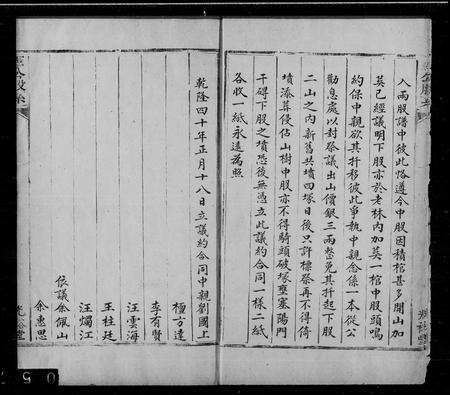 入兩股譜中彼此恪遵今中股因積棺甚多開山加
塟已經議明下股亦於老林內加塟一棺中股頭鳴
約保中親欲其扦移彼此爭執中親念係一本從公
勸息處以封祭議出山價銀三兩整免其扦起下股
二山之內新舊共墳四塚日後只許標祭再不得倚
墳添葬侵佔山樹中股亦不得騎頭破塚壅塞陽門
干碍下股之墳恐後無憑立此議約合同一樣二紙
各收一紙永遠為照
乾隆四十年正月十八日立議約合同中親劉國上
程方達
李有賢
汪雲海
王柱廷
汪燭江
依議余佩山
余惠思
0 5